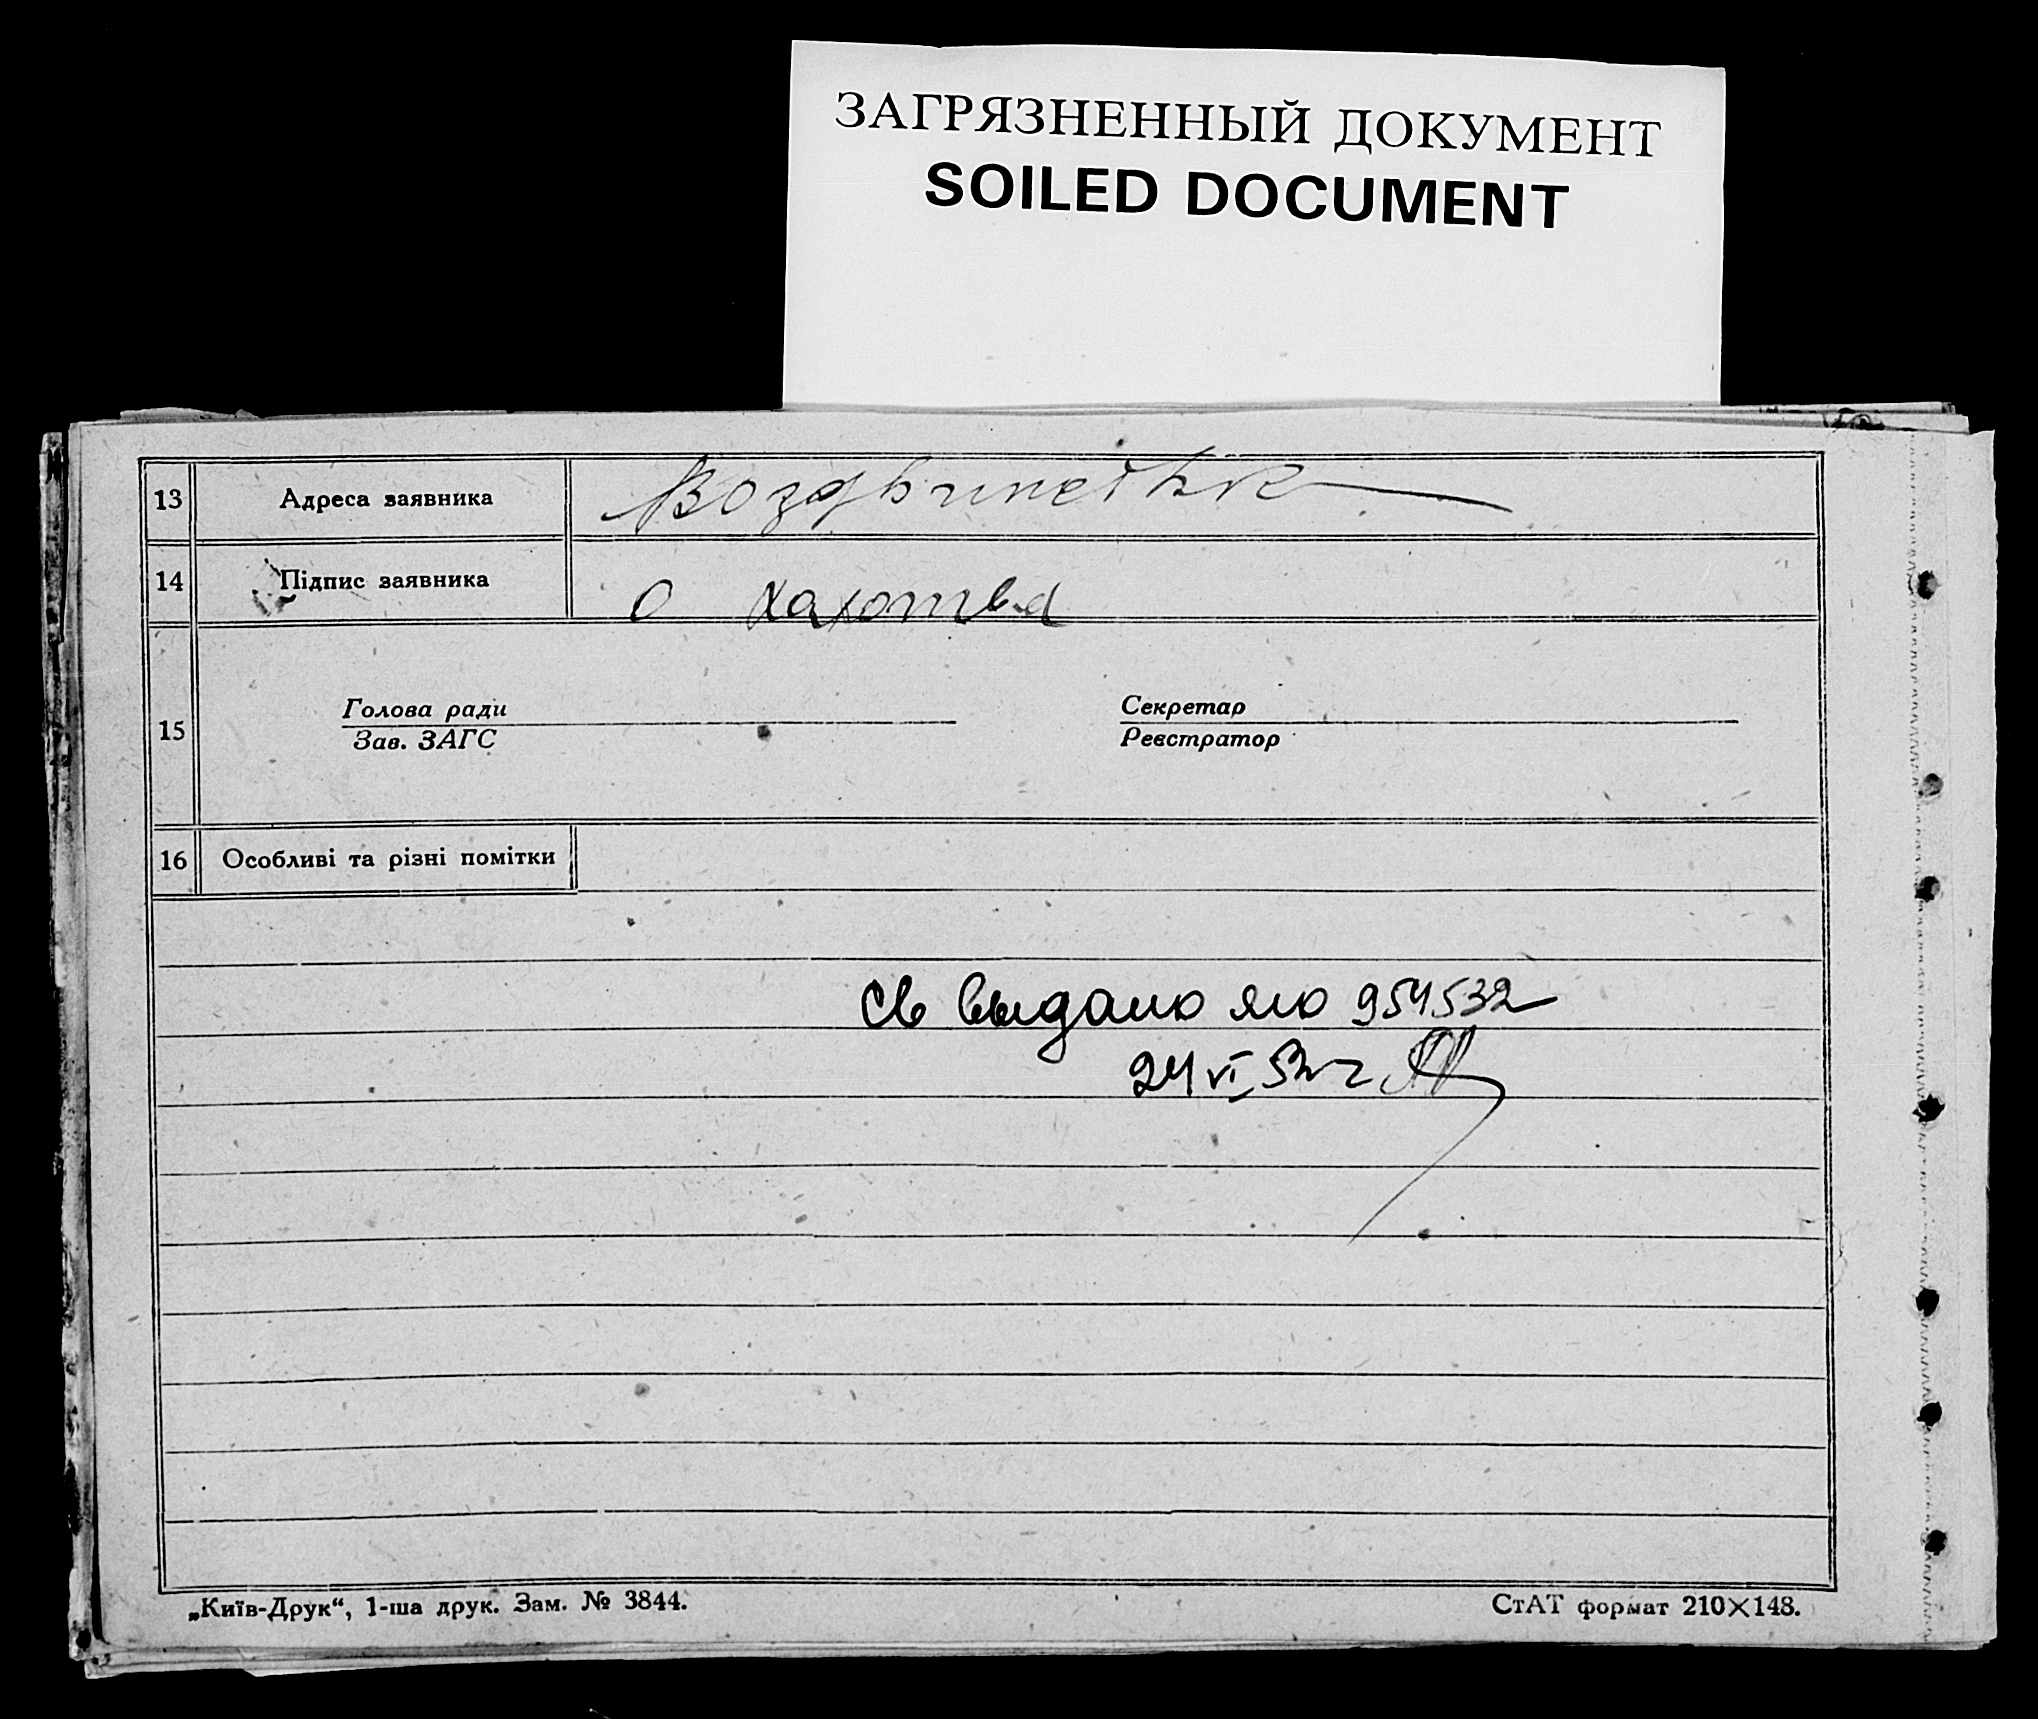 ЗАГРЯЗНЕННЫЙ ДОКУМЕНТ
SOILED DOCUMENT
13 Адреса заявника
14 Підпис заявника О
15 Голова ради Секретар
Зав. ЗАГС Реєстратор
16 Особливі та різні помітки
Св выдано яю 954532
24 VI 52 г
„Київ-Друк“, 1-ша друк. Зам. № 3844.
СтАТ формат 210×148.